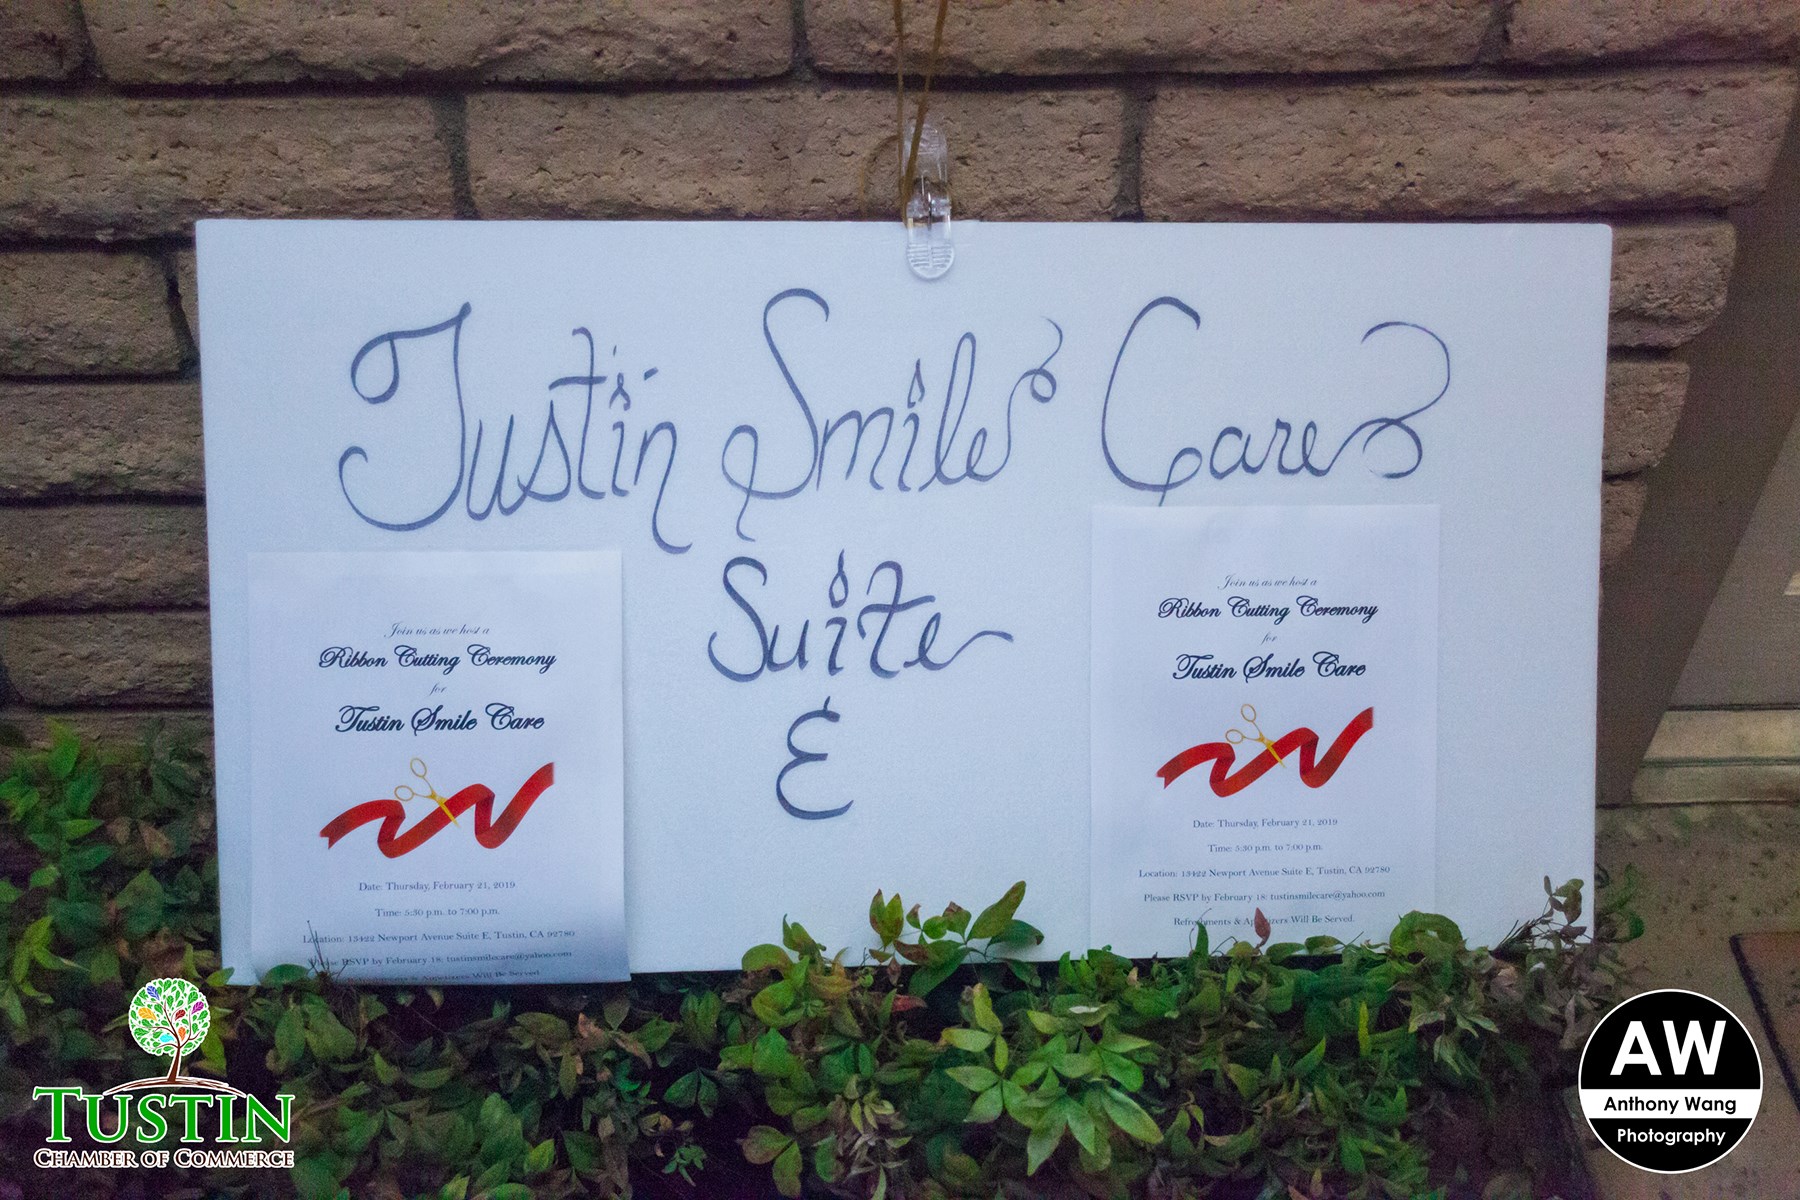 Tustin Smile Care
Suite
E
Join us as we host a
Ribbon Cutting Ceremony
for
Tustin Smile Care
Date: Thursday, February 21, 2019
Time: 5:30 p.m. to 7:00 p.m.
Location: 13422 Newport Avenue Suite E, Tustin, CA 92780
Please RSVP by February 18: tustinsmilecare@yahoo.com
& Appetizers Will Be Served.
Join us as we host a
Ribbon Cutting Ceremony
for
Tustin Smile Care
Date: Thursday, February 21, 2019
Time: 5:30 p.m. to 7:00 p.m.
Location: 13422 Newport Avenue Suite E, Tustin, CA 92780
Please RSVP by February 18: tustinsmilecare@yahoo.com
Refreshments & Appetizers Will Be Served.
TUSTIN
CHAMBER OF COMMERCE
AW
Anthony Wang
Photography